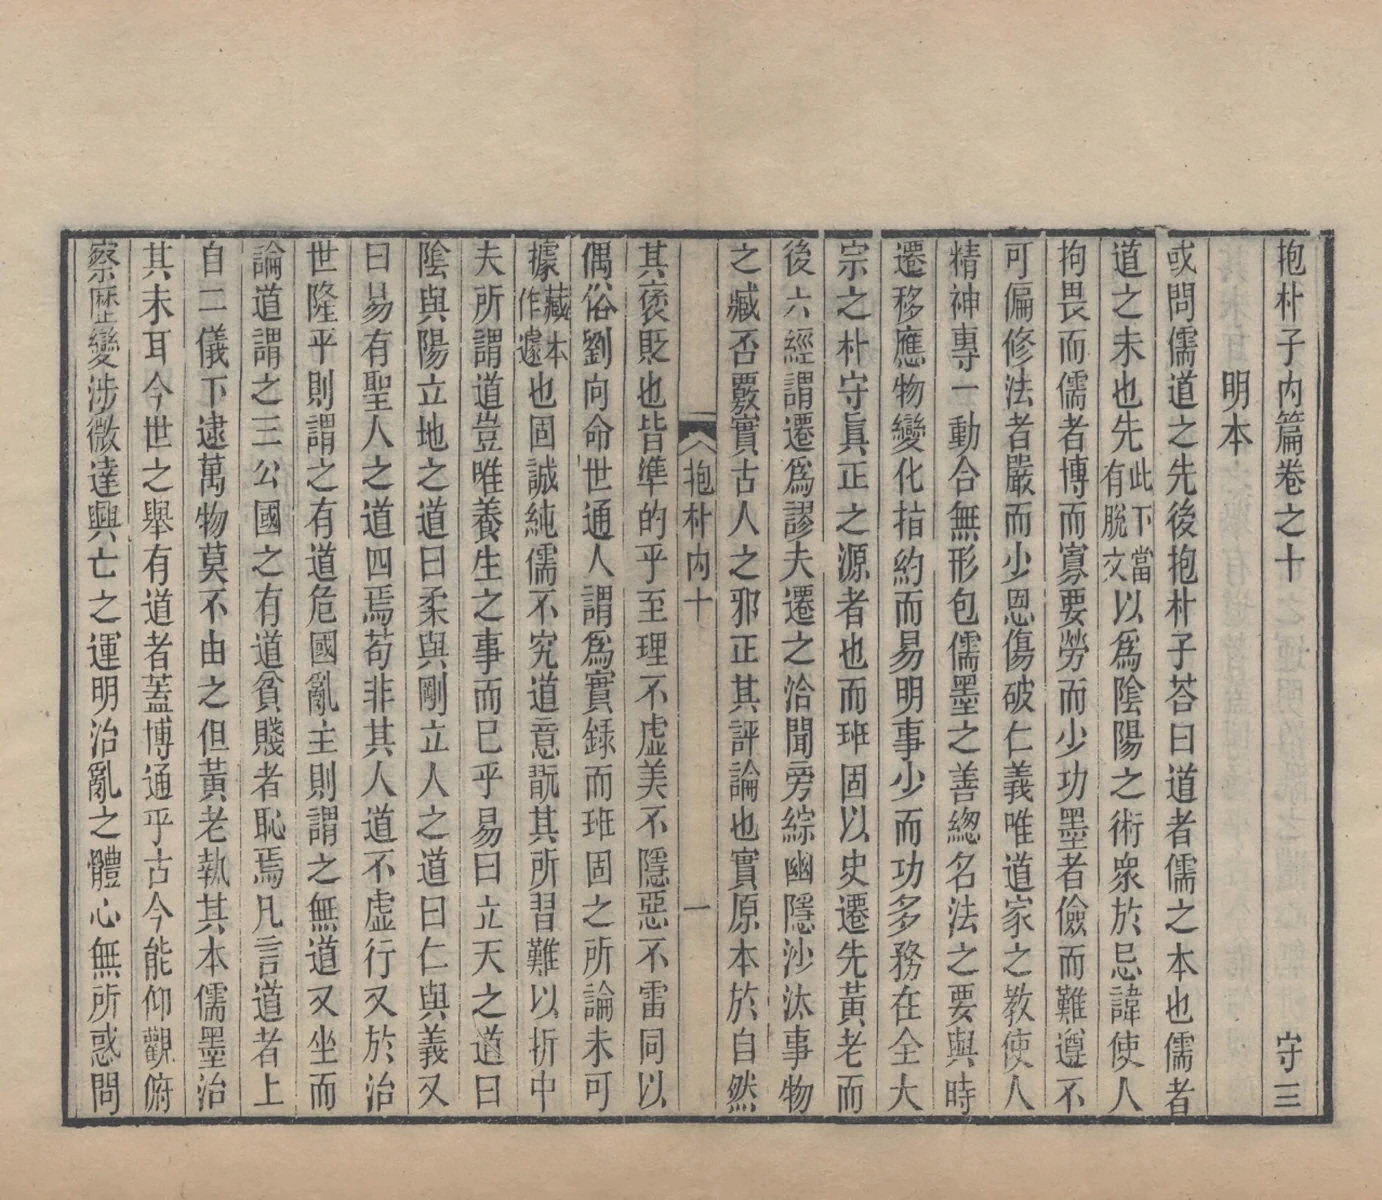 抱朴子內篇卷之十 守三
明本
或問儒道之先後抱朴子荅曰道者儒之本也儒者
道之末也先此下當有脫文以爲陰陽之術衆於忌諱使人
拘畏而儒者博而寡要勞而少功墨者儉而難遵不
可偏修法者嚴而少恩傷破仁義唯道家之教使人
精神專一動合無形包儒墨之善緫名法之要與時
遷移應物變化指約而易明事少而功多務在全大
宗之朴守眞正之源者也而班固以史遷先黃老而
後六經謂遷爲謬夫遷之洽聞旁綜幽隱沙汰事物
之臧否覈實古人之邪正其評論也實原本於自然
抱朴內十 一
其褒貶也皆準的乎至理不虛美不隱惡不雷同以
偶俗劉向命世通人謂爲實錄而班固之所論未可
據藏本作遽也固誠純儒不究道意翫其所習難以折中
夫所謂道豈唯養生之事而已乎易曰立天之道曰
陰與陽立地之道曰柔與剛立人之道曰仁與義又
曰易有聖人之道四焉苟非其人道不虛行又於治
世隆平則謂之有道危國亂主則謂之無道又坐而
論道謂之三公國之有道貧賤者恥焉凡言道者上
自二儀下逮萬物莫不由之但黃老執其本儒墨治
其末耳今世之舉有道者蓋博通乎古今能仰觀俯
察歷變涉微達興亡之運明治亂之體心無所惑問